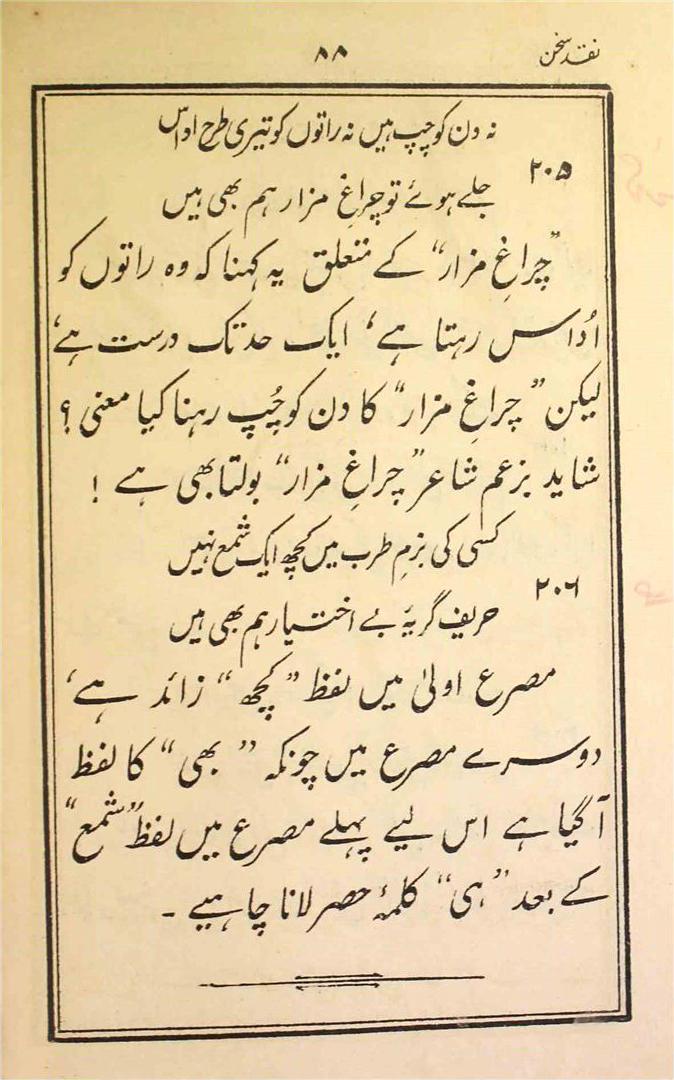 نقد سخن
۸۸
نہ دن کو چپ ہیں نہ راتوں کو تیری طرح اداس
۲۰۵
جلے ہوئے تو چراغِ مزار ہم بھی ہیں
”چراغِ مزار“ کے متعلق یہ کہنا کہ وہ راتوں کو
اُداس رہتا ہے، ایک حد تک درست ہے،
لیکن ”چراغِ مزار“ کا دن کو چُپ رہنا کیا معنی؟
شاید بزعم شاعر ”چراغِ مزار“ بولتا بھی ہے!
کسی کی بزمِ طرب میں کچھ ایک شمع نہیں
۲۰۶
حریف گریۂ بے اختیار ہم بھی ہیں
مصرع اولیٰ میں لفظ ”کچھ“ زائد ہے،
دوسرے مصرع میں چونکہ ”بھی“ کا لفظ
آ گیا ہے اس لیے پہلے مصرع میں لفظ ”شمع“
کے بعد ”ہی“ کلمۂ حصر لانا چاہیے۔